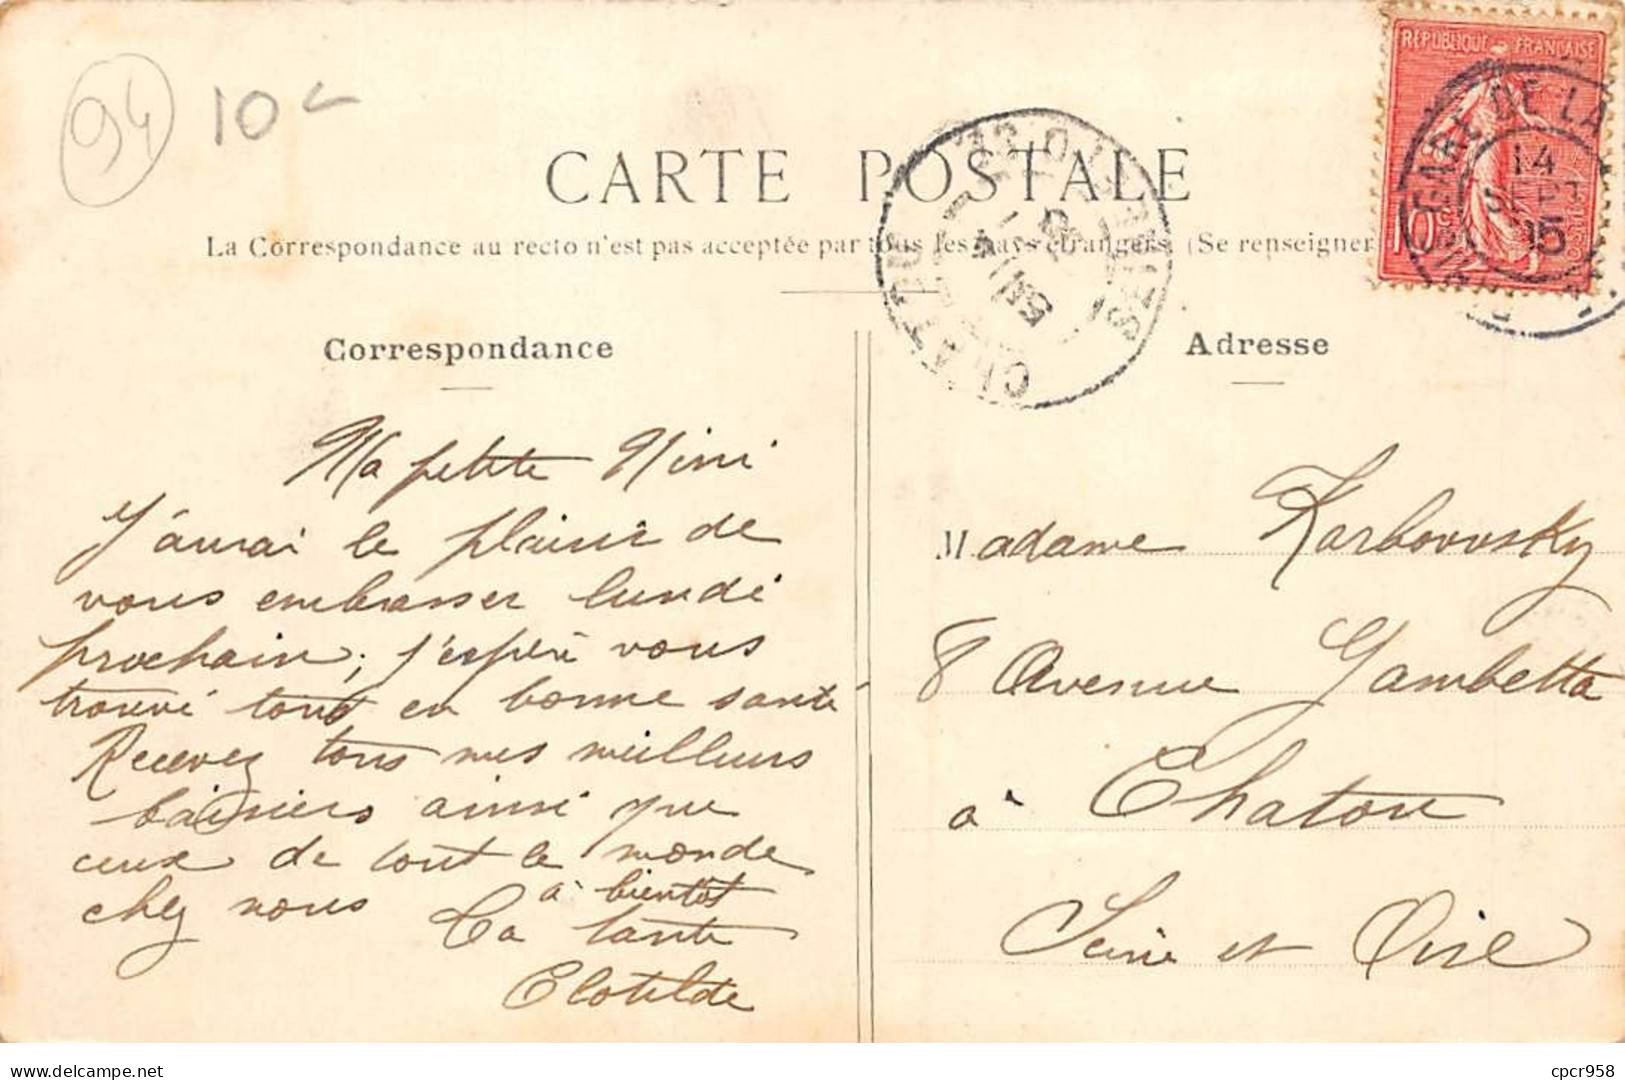 94
10
CARTE POSTALE
La Correspondance au recto n'est pas acceptée par tous les pays étrangers. (Se renseigner
REPUBLIQUE FRANÇAISE
10
GARE DE LA
14
SEPT
05
CHATOU
SEINE-ET-OISE
Correspondance
Ma petite Nini
J'aurai le plaisir de
vous embrasser lundi
prochain; j'espère vous
trouvé tous en bonne santé
Recevez tous mes meilleurs
baisiers ainsi que
ceux de tout le monde
chez nous à bientôt
Ta tante
Clotilde
Adresse
Madame Karbowsky
8 Avenue Gambetta
à Chatou
Seine et Oise
delcampe.net
cpcr958